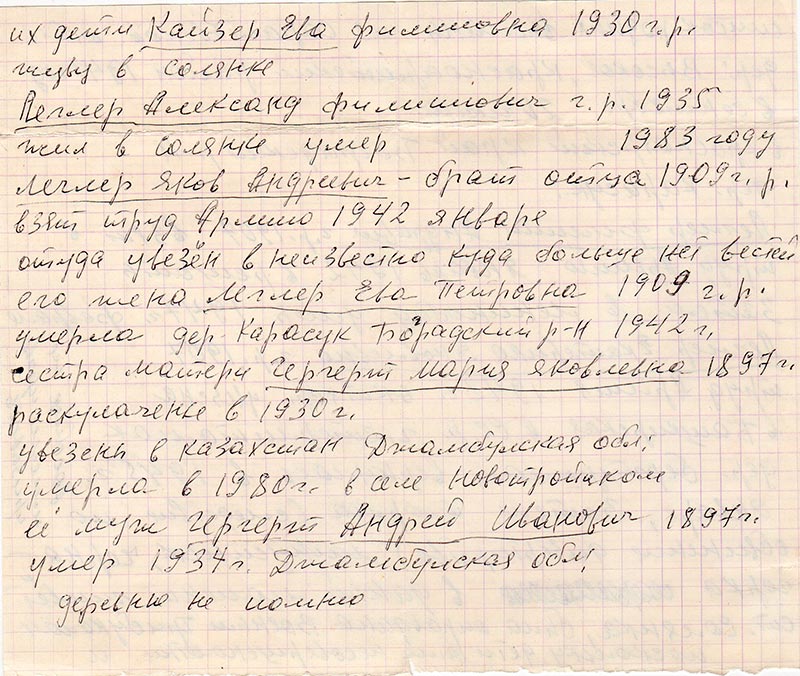 их дети Кайзер Ева филиповна 1930 г.р.
живу в солянке
Леглер Александ филипович г.р. 1935
жил в солянке умер 1983 году
Леглер Яков Андреевич - брат отца 1909 г.р.
взят труд Армию 1942 январе
отуда увезён в неизвестно куда больше нет вестей
его жена Леглер Ева Петровна 1909 г.р.
умерла дер. Карасук Боградский р-н 1942 г.
сестра матери Гергерт Мария Яковлевна 1897 г.
раскулачены в 1930 г.
увезены в казахстан Джамбулская обл;
умерла в 1980 г. в селе Новотройцком
её муж Гергерт Андрей Иванович 1897 г.
умер 1934 г. Джамбулская обл;
деревню не помню